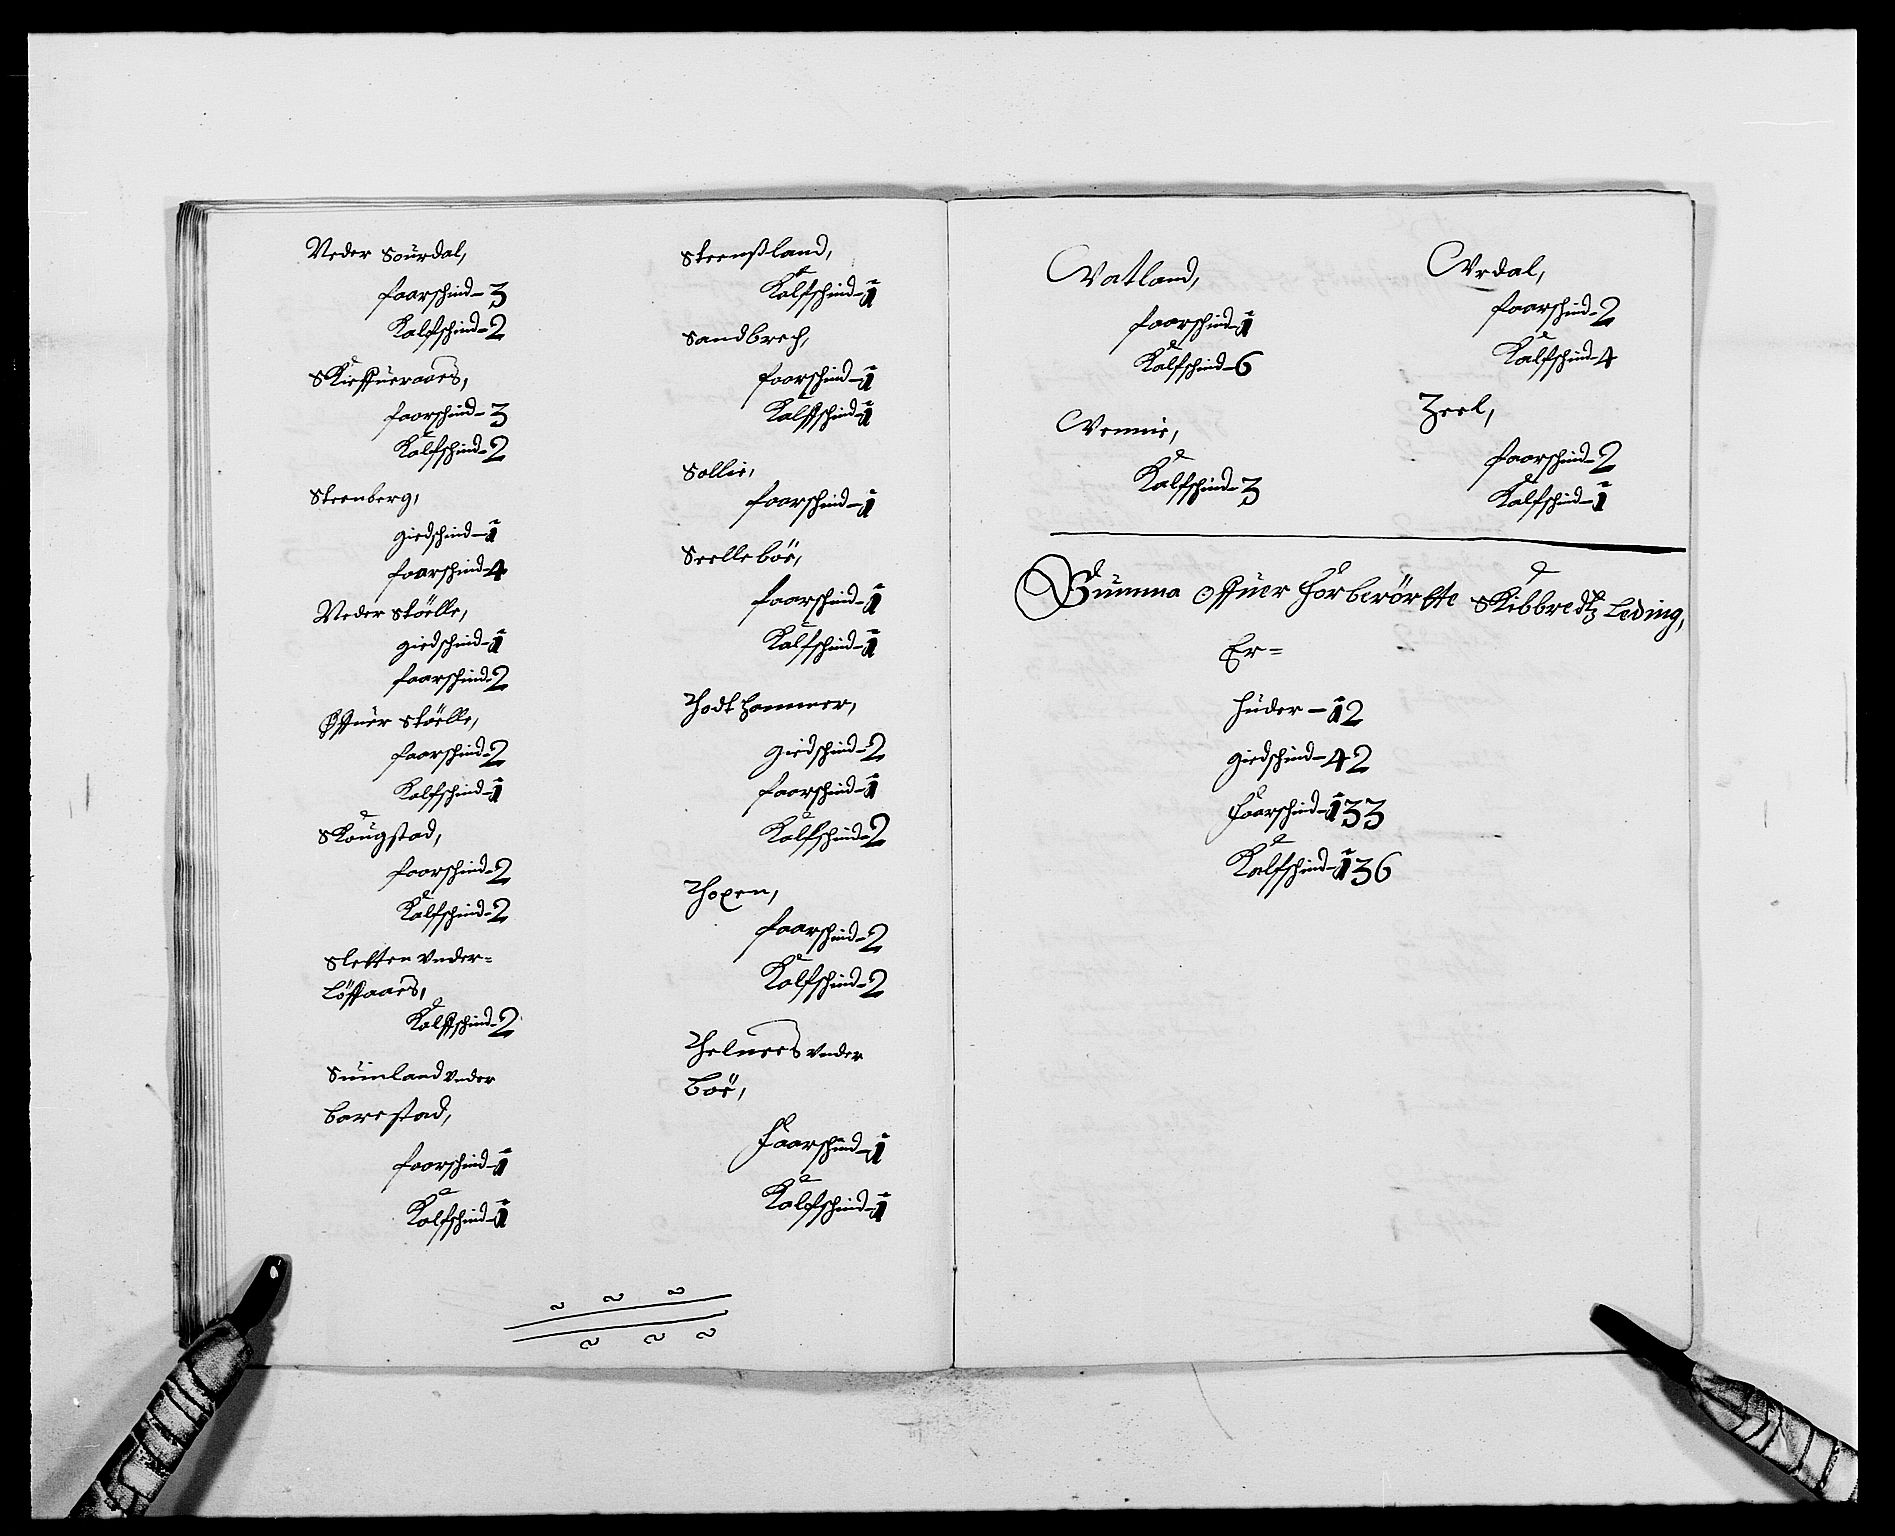 Neder Sourdal,
faarschind - 3
Kalfschind - 2
Skieffueraaes,
faarschind - 3
Kalfschind - 2
Steenberg,
giedschind - 1
faarschind - 4
Neder Støelle,
giedschind - 1
faarschind - 2
Øffuer Støelle,
faarschind - 2
Kalfschind - 1
Skougstad,
faarschind - 2
Kalfschind - 2
Sletten vnder=
Løffaaes,
Kalffschind - 2
Suinland vnder
Barestad,
faarschind - 1
Kalfschind - 1
Steensland,
Kalfschind - 1
Sandbrech,
faarschind - 1
Kalffschind - 1
Sollie,
faarschind - 1
Seellebøe,
faarschind - 1
Kalfschind - 1
Thodt Hammer,
giedschind - 2
faarschind - 1
Kalfschind - 2
Thoxen,
faarschind - 2
Kalfschind - 2
Thelnees vnder
Bøe,
Faarschind - 1
Kalfschind - 1
Vatland,
faarschind - 1
Kalfschind - 6
Vemmie,
Kalfschind - 3
Vrdal,
faarschind - 2
Kalfschind - 4
Zeel,
faarschind - 2
Kalfschind - 1
Summa Offuer Forberørtte Skibbredtz Leding,
Er=
Huder - 12
giedschind - 42
Faarschind - 133
Kalfschind - 136